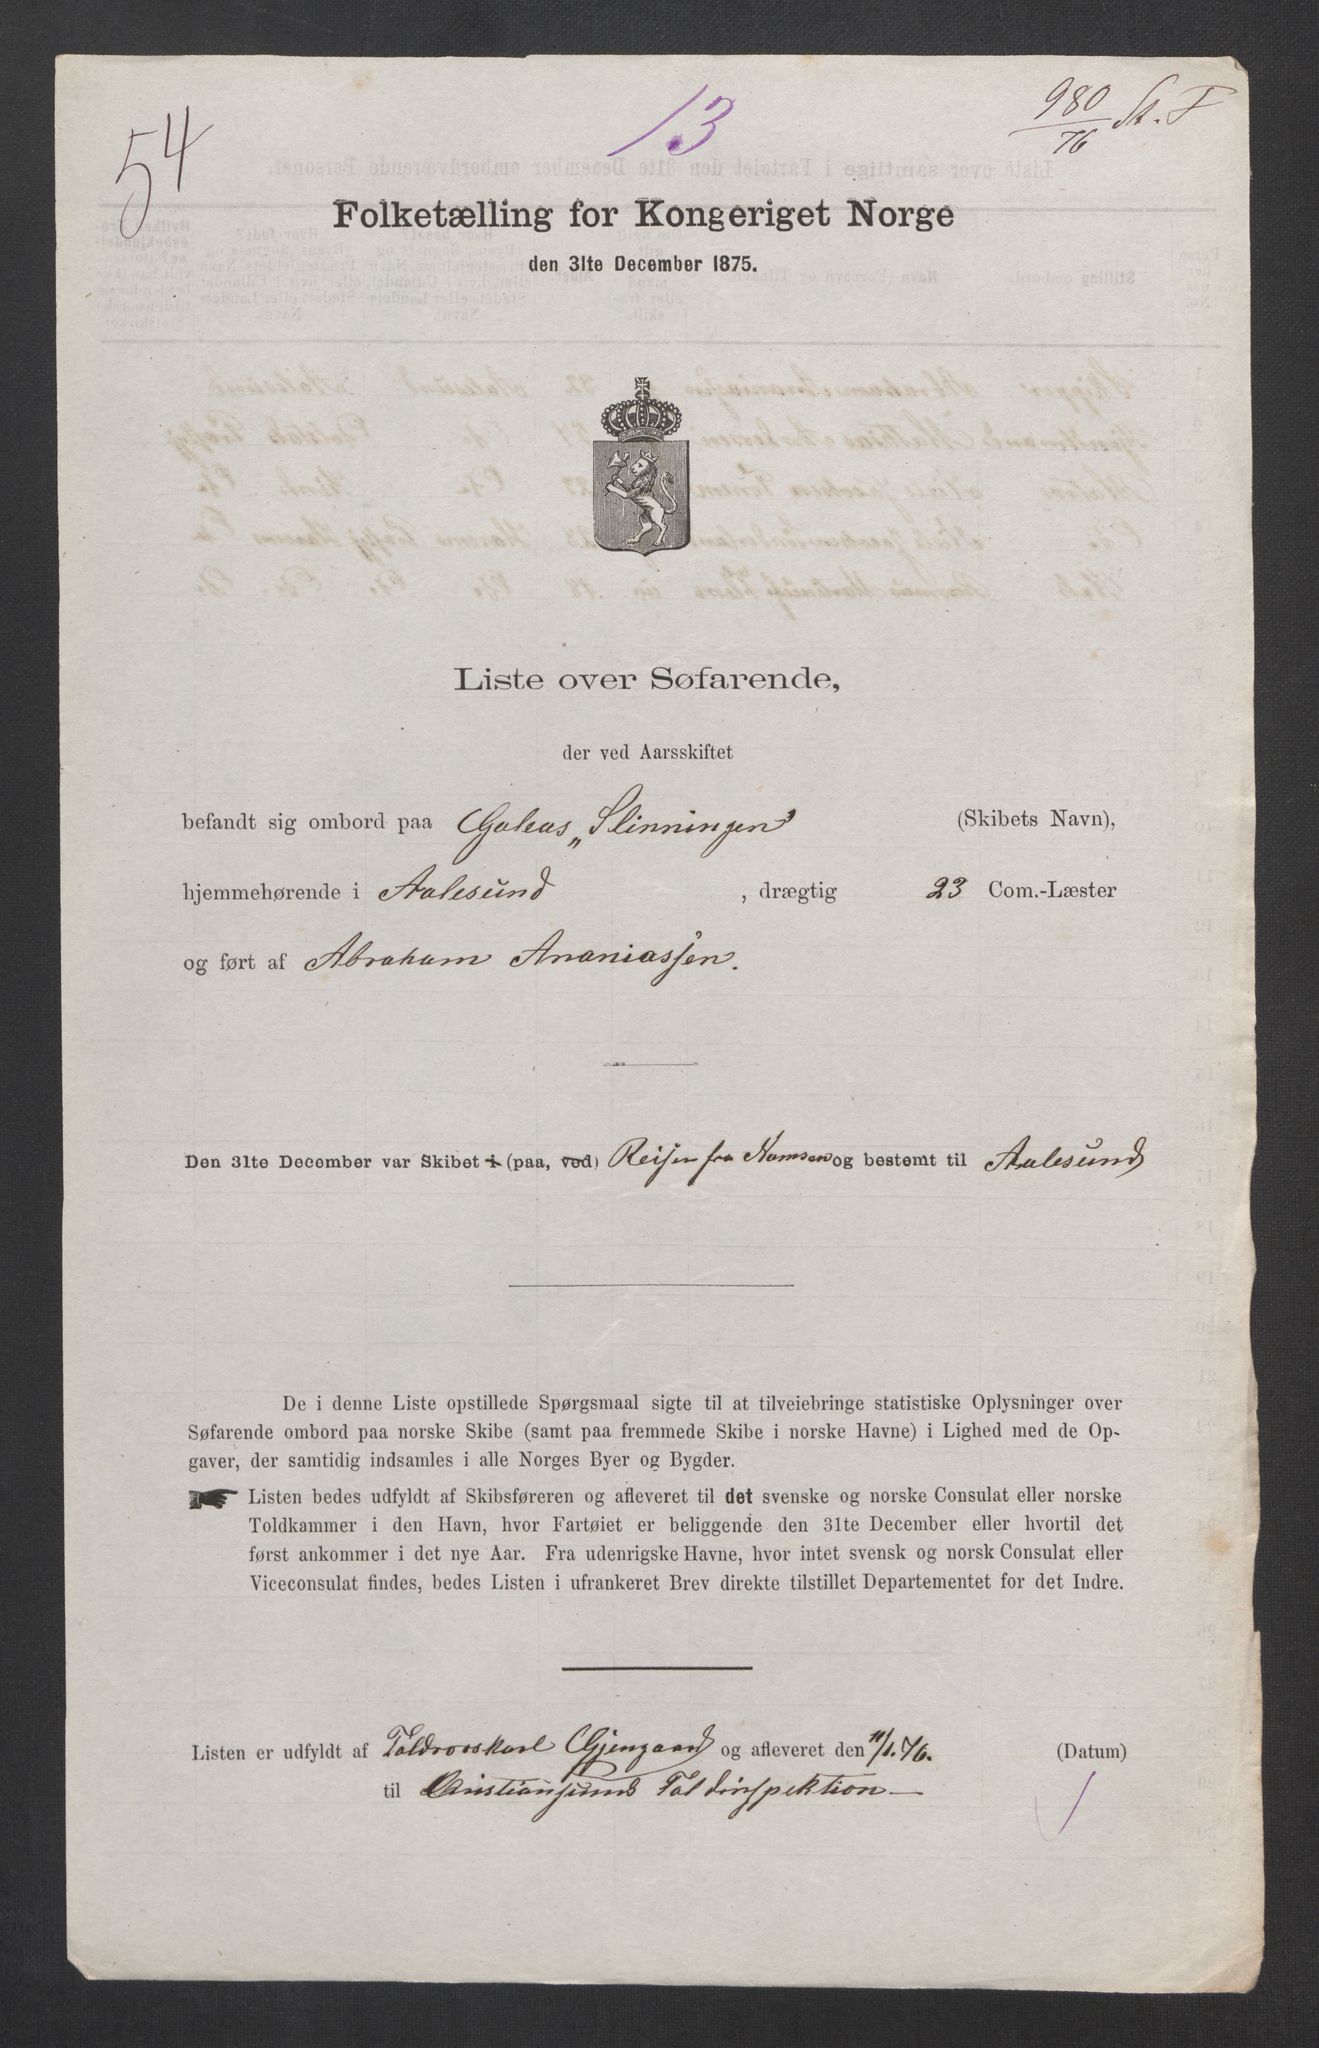 54
13
980/76 St. F
Folketælling for Kongeriget Norge
den 31te December 1875.
Liste over Søfarende,
der ved Aarsskiftet
befandt sig ombord paa Galeas „Slinningen" (Skibets Navn),
hjemmehørende i Aalesund , drægtig 23 Com.-Læster
og ført af Abraham Ananiassen.
Den 31te December var Skibet i (paa, ved) Reisen fra Namsen og bestemt til Aalesund
De i denne Liste opstillede Spørgsmaal sigte til at tilveiebringe statistiske Oplysninger over
Søfarende ombord paa norske Skibe (samt paa fremmede Skibe i norske Havne) i Lighed med de Op-
gaver, der samtidig indsamles i alle Norges Byer og Bygder.
Listen bedes udfyldt af Skibsføreren og afleveret til det svenske og norske Consulat eller norske
Toldkammer i den Havn, hvor Fartøiet er beliggende den 31te December eller hvortil det
først ankommer i det nye Aar. Fra udenrigske Havne, hvor intet svensk og norsk Consulat eller
Viceconsulat findes, bedes Listen i ufrankeret Brev direkte tilstillet Departementet for det Indre.
Listen er udfyldt af Toldroerskarl Gjengaard og afleveret den 11/1. 76. (Datum)
til Christianssunds Toldinspektion